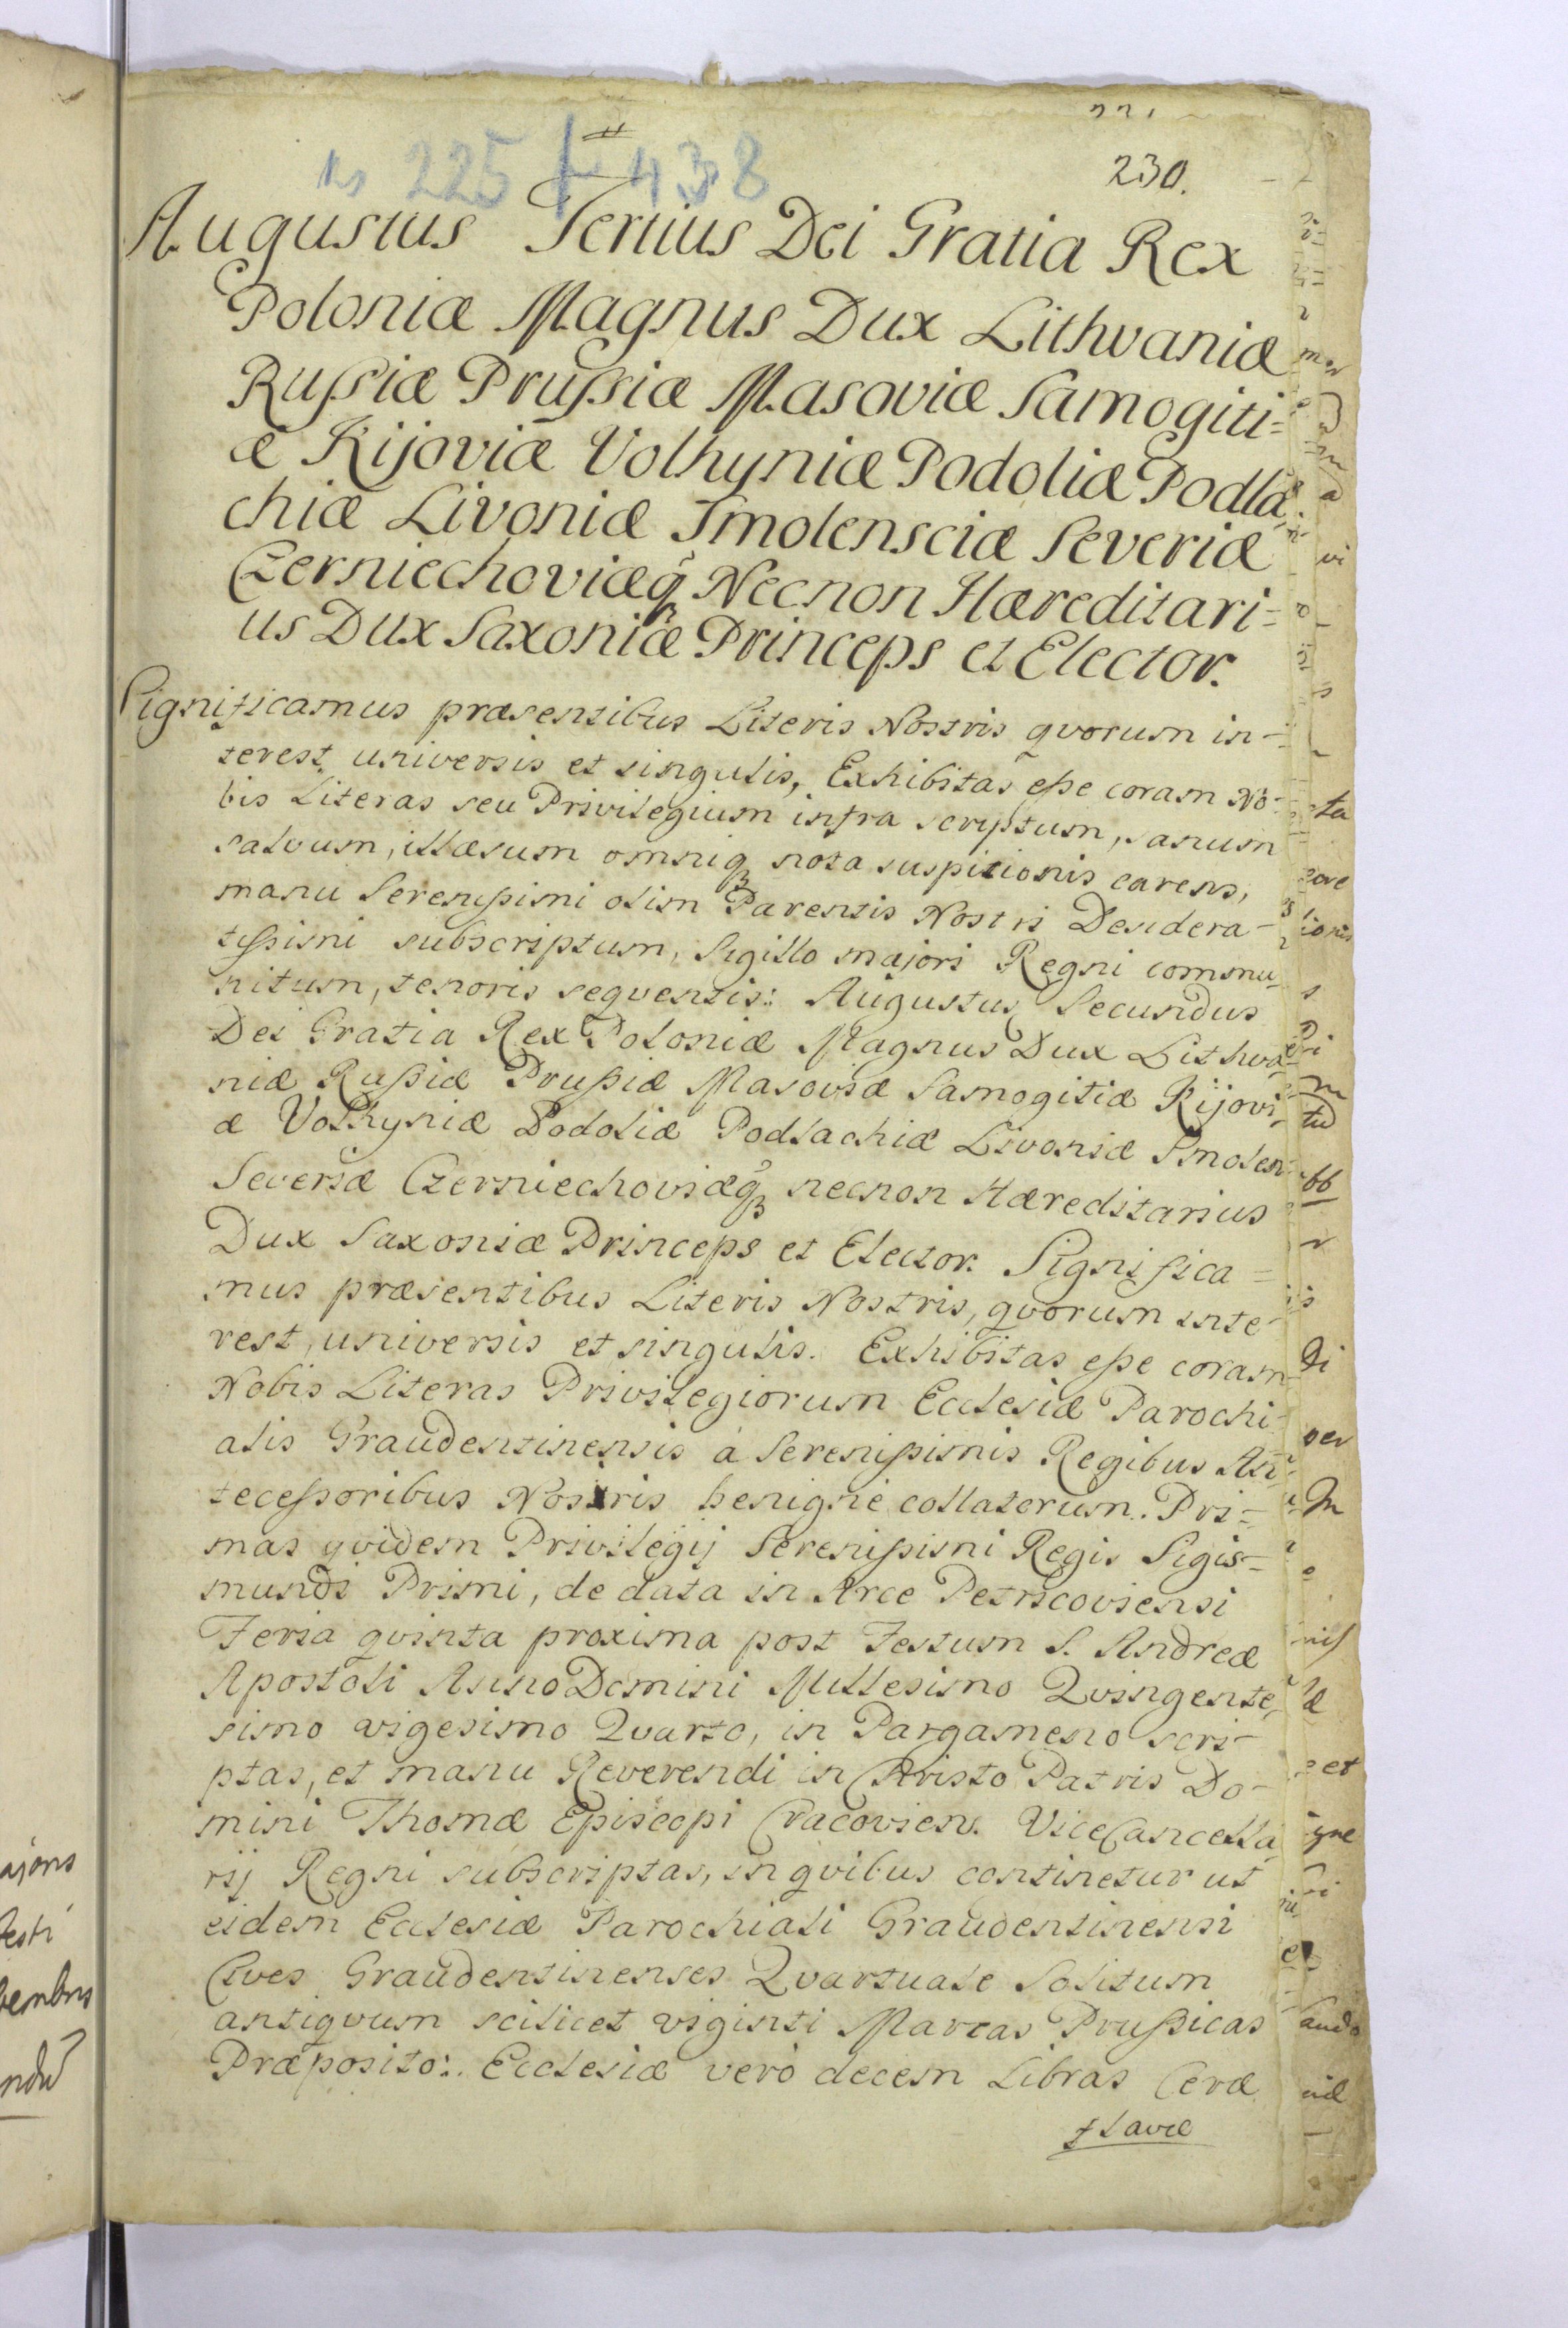 230.
225 438
Augustus Tertius Dei Gratia Rex
Poloniæ Magnus Dux Lithvaniæ
Rußiæ Prußiæ Masoviæ Samogiti=
æ Kijoviæ Volhyniæ Podoliæ Podla
chiæ Livoniæ Smolensciæ Severiæ
Czerniechoviæq Necnon Hæreditari=
us Dux Saxoniæ Princeps et Elector.
Significamus præsentibus Literis Nostris qvorum in-
terest universis et singulis, Exhibitas eße coram No-
bis Literas seu Privilegium infra scriptum, sanum
salvum, illæsum omniq nota suspicionis carens,
manu Serenißimi olim Parentis Nostri Desidera-
tißimi subscriptum, Sigillo majori Regni commu-
nitum, tenoris seqventis: Augustus Secundus
Dei Gratia Rex Poloniæ Magnus Dux Lithva-
niæ Rußiæ Prußiæ Masoviæ Samogitiæ Kijovi-
æ Volhyniæ Podoliæ Podlachiæ Livoniæ Smolen
Severiæ Czerniechoviæq necnon Hæreditarius
Dux Saxoniæ Princeps et Elector. Significa=
mus præsentibus Literis Nostris, qvorum inte
rest, universis et singulis. Exhibitas eße coram
Nobis Literas Privilegiorum Ecclesiæ Parochi-
alis Graudentinensis à Serenißimis Regibus An-
teceßoribus Nostris benigne collatorum. Pri=
mas qvidem Privilegij Serenißimi Regis Sigis=
mundi Primi, de data in Arce Petricoviensi
Feria qvinta proxima post Festum S. Andreæ
Apostoli Anno Domini Millesimo Qvingente
simo vigesimo Qvarto, in Pargameno scri-
ptas, et manu Reverendi in Christo Patris Do-
mini Thomæ Episcopi Cracovien. ViceCancella
rij Regni subscriptas, in qvibus continetur ut
eidem Ecclesiæ Parochiali Graudentinensi
Cives Graudentinenses Qvartuale Solitum
antiqvum scilicet viginti Marcas Prußicas
Præposito: Ecclesiæ verò decem Libras Ceræ
flavæ